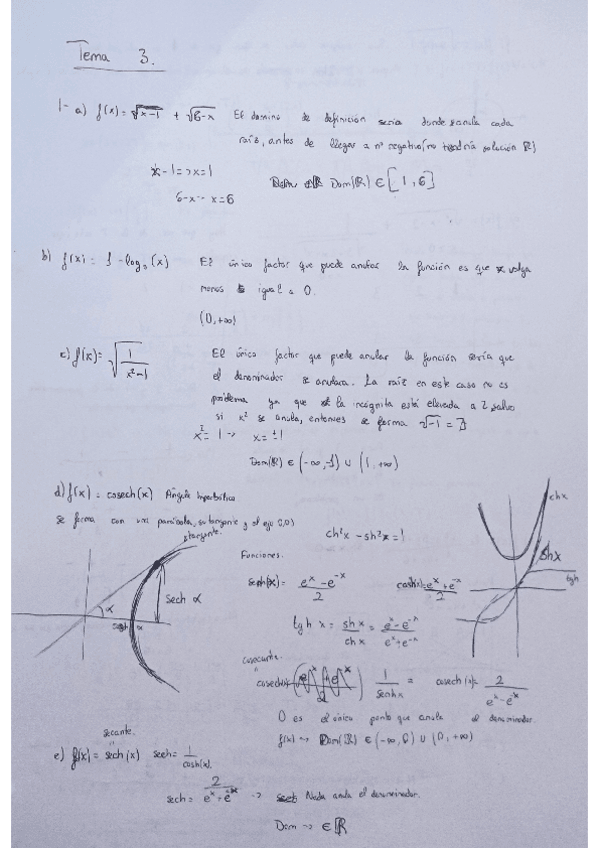 Tema 3.
1- a) f(x) = √x-1 + √6-x El dominio de definición sería donde se anula cada
raíz, antes de llegar a nº negativo (no tendría solución ℝ)
x-1 => x=1
6-x -- x=6
Dom(ℝ) ∈ [1,6]
b) f(x) = 1 - log₂(x) El único factor que puede anular la función es que x valga
menos igual a 0.
(0,+∞)
c) f(x) = √(1/(x²-1)) El único factor que puede anular la función sería que
el denominador se anulara. La raíz en este caso no es
problema ya que la incógnita está elevada a 2 salvo
si x² se anula, entonces se forma √-1 = ∄
x² = 1 -> x = ±1
Dom(ℝ) ∈ (-∞,-1) ∪ (1,+∞)
d) f(x) = cosech(x) Ángulo hiperbólico
se forma con una parábola, su tangente y el eje (0,0)
tangente.
ch²x - sh²x = 1
chx
shx
tgh
Funciones.
α
Sech α
e^x - e^-x / 2
cosh(x) = e^x + e^-x / 2
tgh x = sh x / ch x = e^x - e^-x / e^x + e^-x
cosecante.
cosech(x) 1 / senhx = cosech(x) = 2 / e^x - e^-x
0 es el único punto que anula el denominador.
f(x) -> Dom(ℝ) ∈ (-∞,0) ∪ (0,+∞)
secante.
e) f(x) = sech(x) sech = 1 / cosh(x).
sech = 2 / e^x + e^-x -> Nada anula el denominador.
Dom -> ∈ ℝ